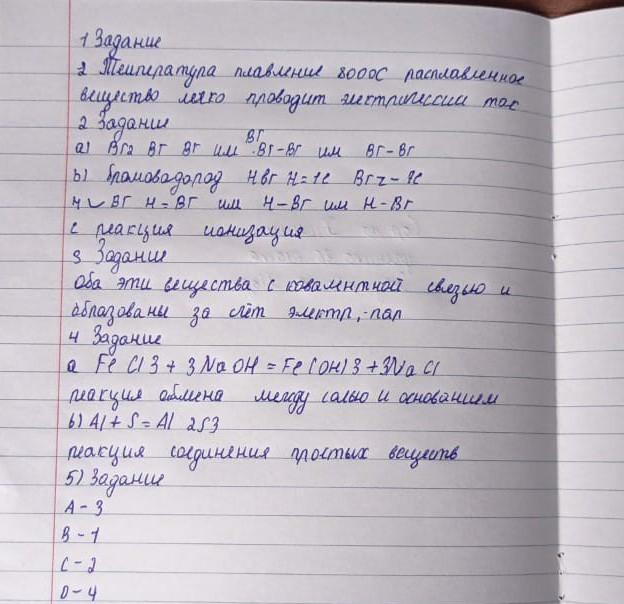 1 Задание
2 Температура плавление 800оС расплавленное
вещество легко проводит электричессии ток
2 Задание
а) Br2 Br Br или Br · Br-Br или Br-Br
b) бромоводород HBr H=1e Br2-7e
H Br H=Br или H-Br или H-Br
с реакция ионизация
3 Задание
Оба эти вещества с ковалентной связью и
образованы за счёт электр,-пар
4 Задание
а FeCl3 + 3NaOH = Fe(OH)3 + 3NaCl
реакция обмена между солью и основанием
b) Al + S = Al 2S3
реакция соединения простых веществ
5) Задание
A - 3
B - 1
C - 2
D - 4